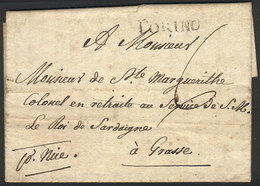 TORINO
A Monsieur
Monsieur de Ste Margueritte
Colonel en retraite au Service de S. M.
Le Roi de Sardaigne
à Grasse.
p. Nice